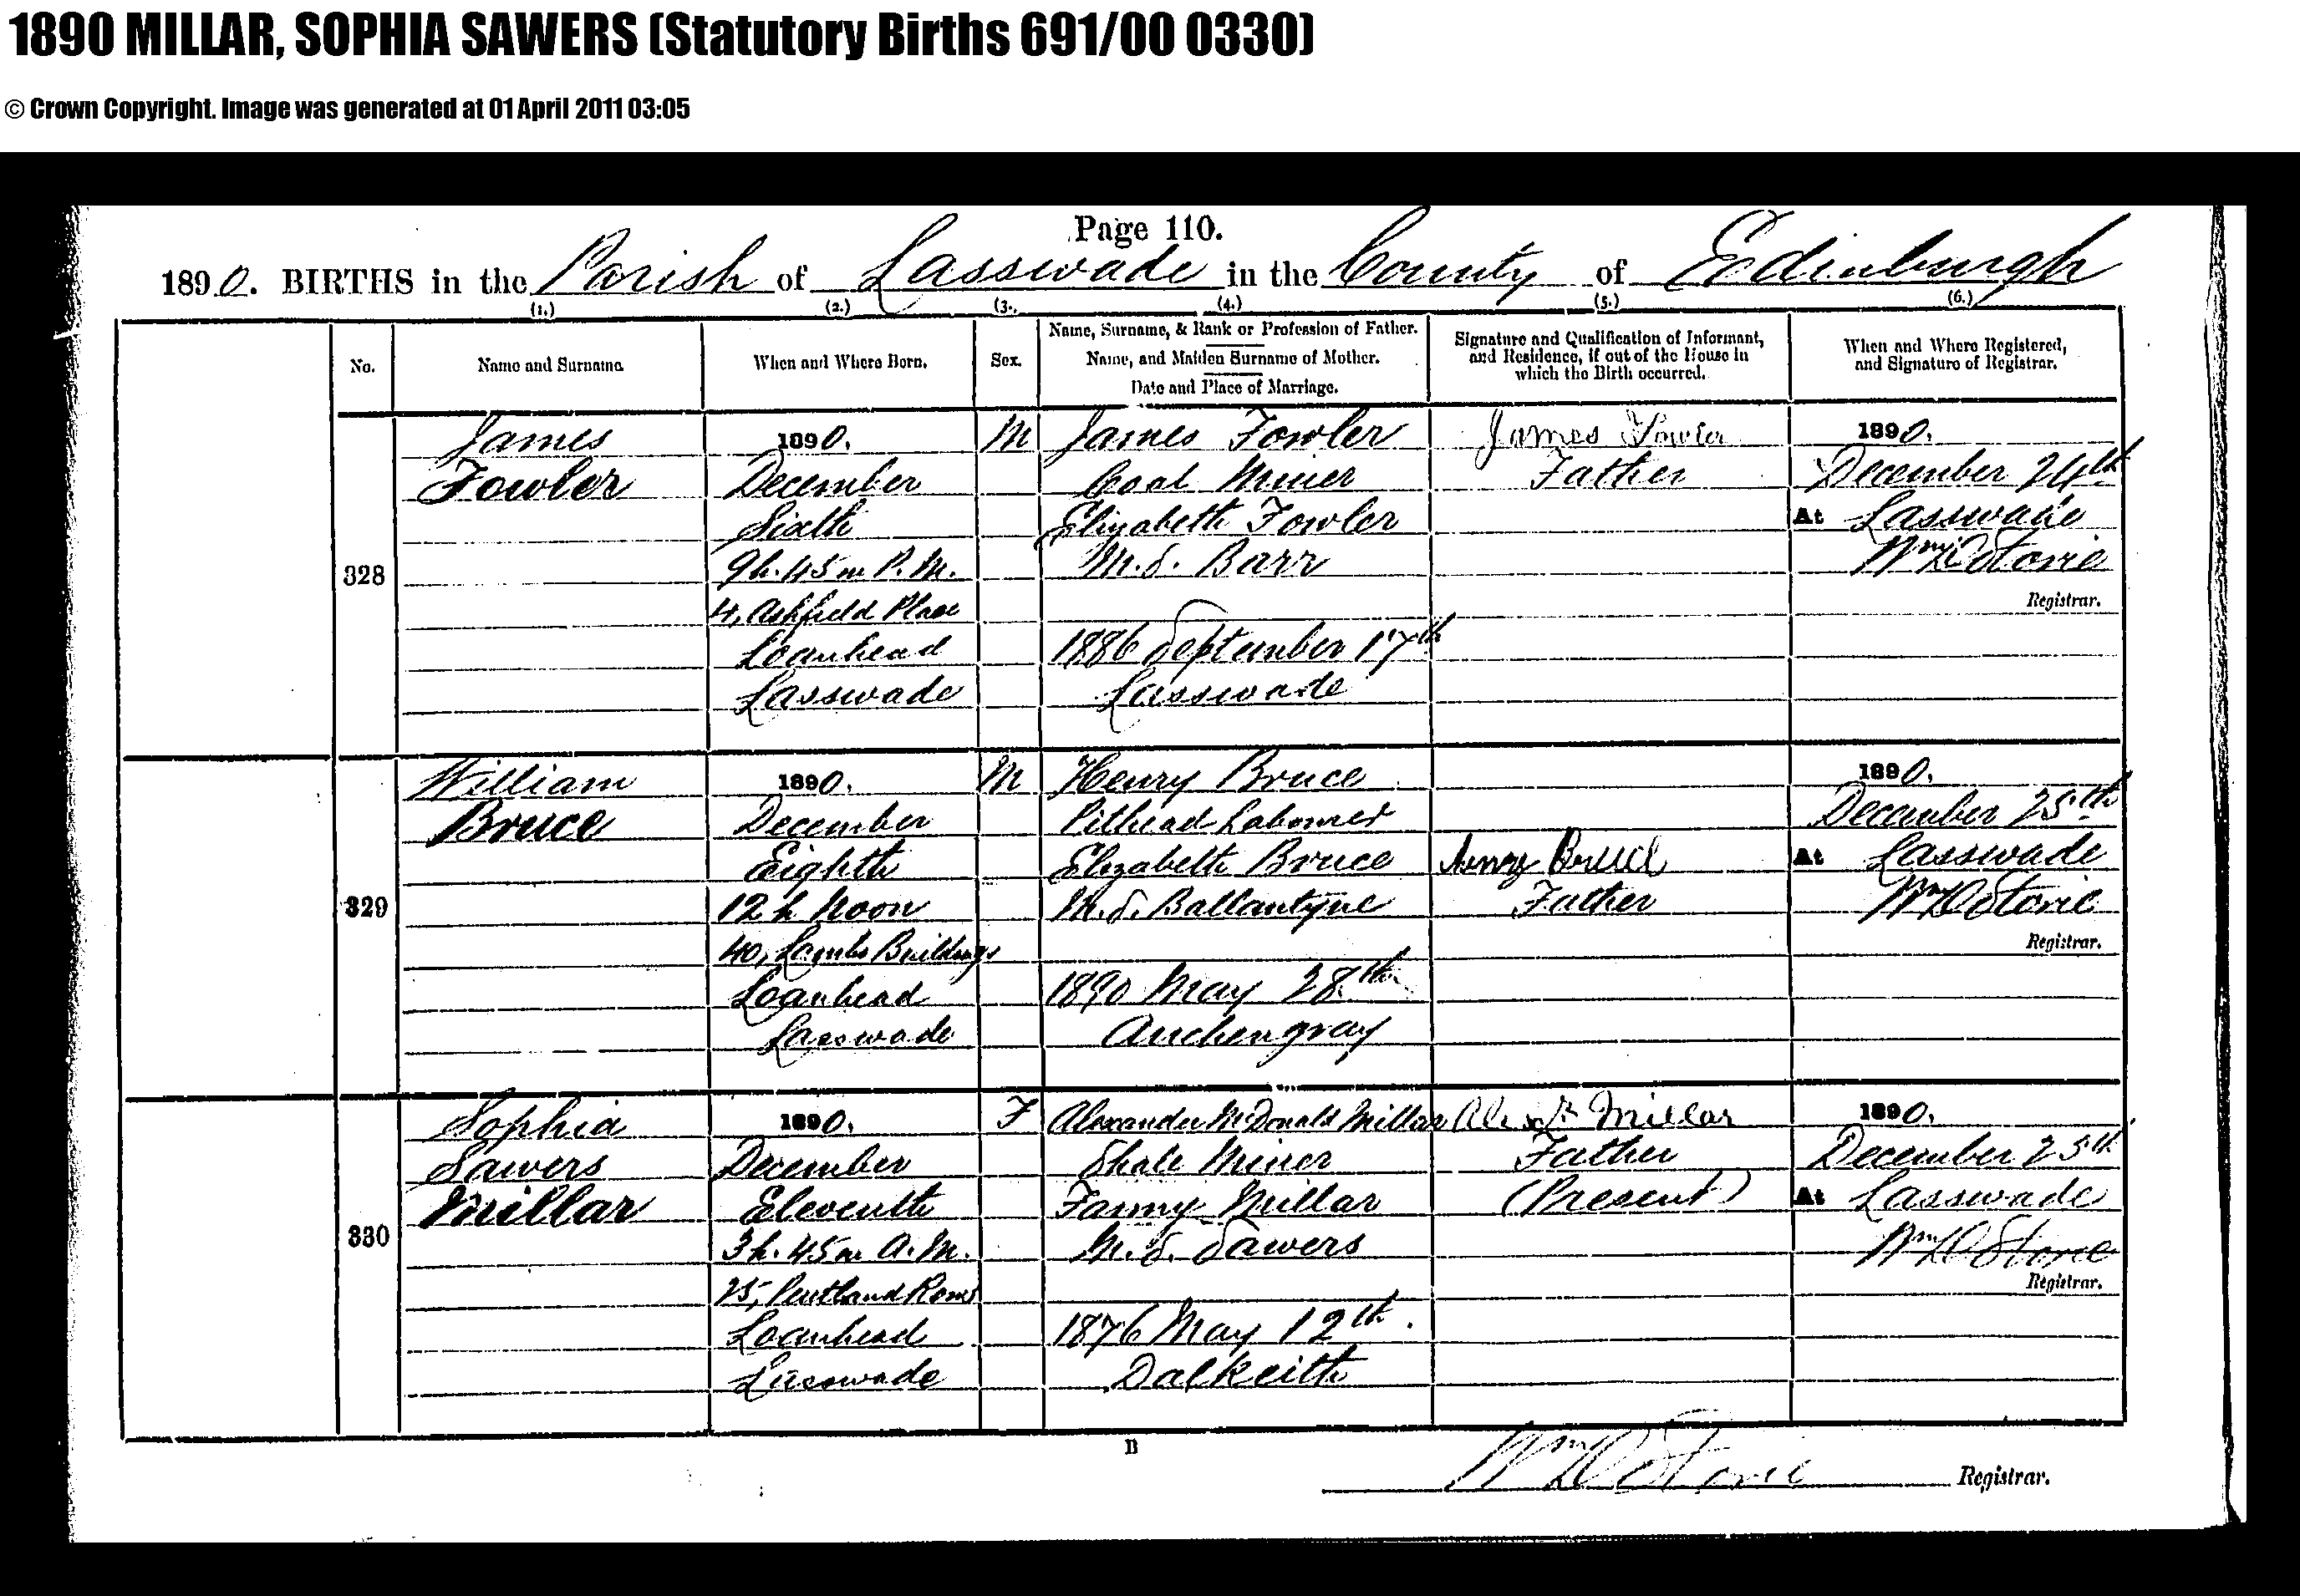 1890 MILLAR, SOPHIA SAWERS (Statutory Births 691/00 0330)
© Crown Copyright. Image was generated at 01 April 2011 03:05
Page 110.
1890. BIRTHS in the Parish of Lasswade in the County of Edinburgh
(1.) (2.) (3. (4.) (5.) (6.)
No.
Name and Surname.
When and Where Born.
Sex.
Name, Surname, & Rank or Profession of Father.
Name, and Maiden Surname of Mother.
Date and Place of Marriage.
Signature and Qualification of Informant,
and Residence, if out of the House in
which the Birth occurred.
When and Where Registered,
and Signature of Registrar.
328
James
Fowler
1890.
December
Sixth
9h. 45m P.M.
4, Ashfield Place
Loanhead
Lasswade
M
James Fowler
Coal Miner
Elizabeth Fowler
M.S. Barr
1886 September 17th
Lasswade
James Fowler
Father
1890.
December 24th
At Lasswade
Wm D Storie
Registrar.
329
William
Bruce
1890.
December
Eighth
12h Noon
40, Lambs Buildings
Loanhead
Lasswade
M
Henry Bruce
Pithead Labourer
Elizabeth Bruce
M.S. Ballantyne
1890 May 28th
Auchengray
Henry Bruce
Father
1890.
December 25th
At Lasswade
Wm D Storie
Registrar.
330
Sophia
Sawers
Millar
1890.
December
Eleventh
3h. 45m A.M.
25, Pentland Rows
Loanhead
Lasswade
F
Alexander McDonald Millar
Shale Miner
Fanny Millar
M.S. Sawers
1876 May 12th.
Dalkeith
Alexr Millar
Father
(Present)
1890.
December 25th
At Lasswade
Wm D Storie
Registrar.
B
Wm D Storie Registrar.